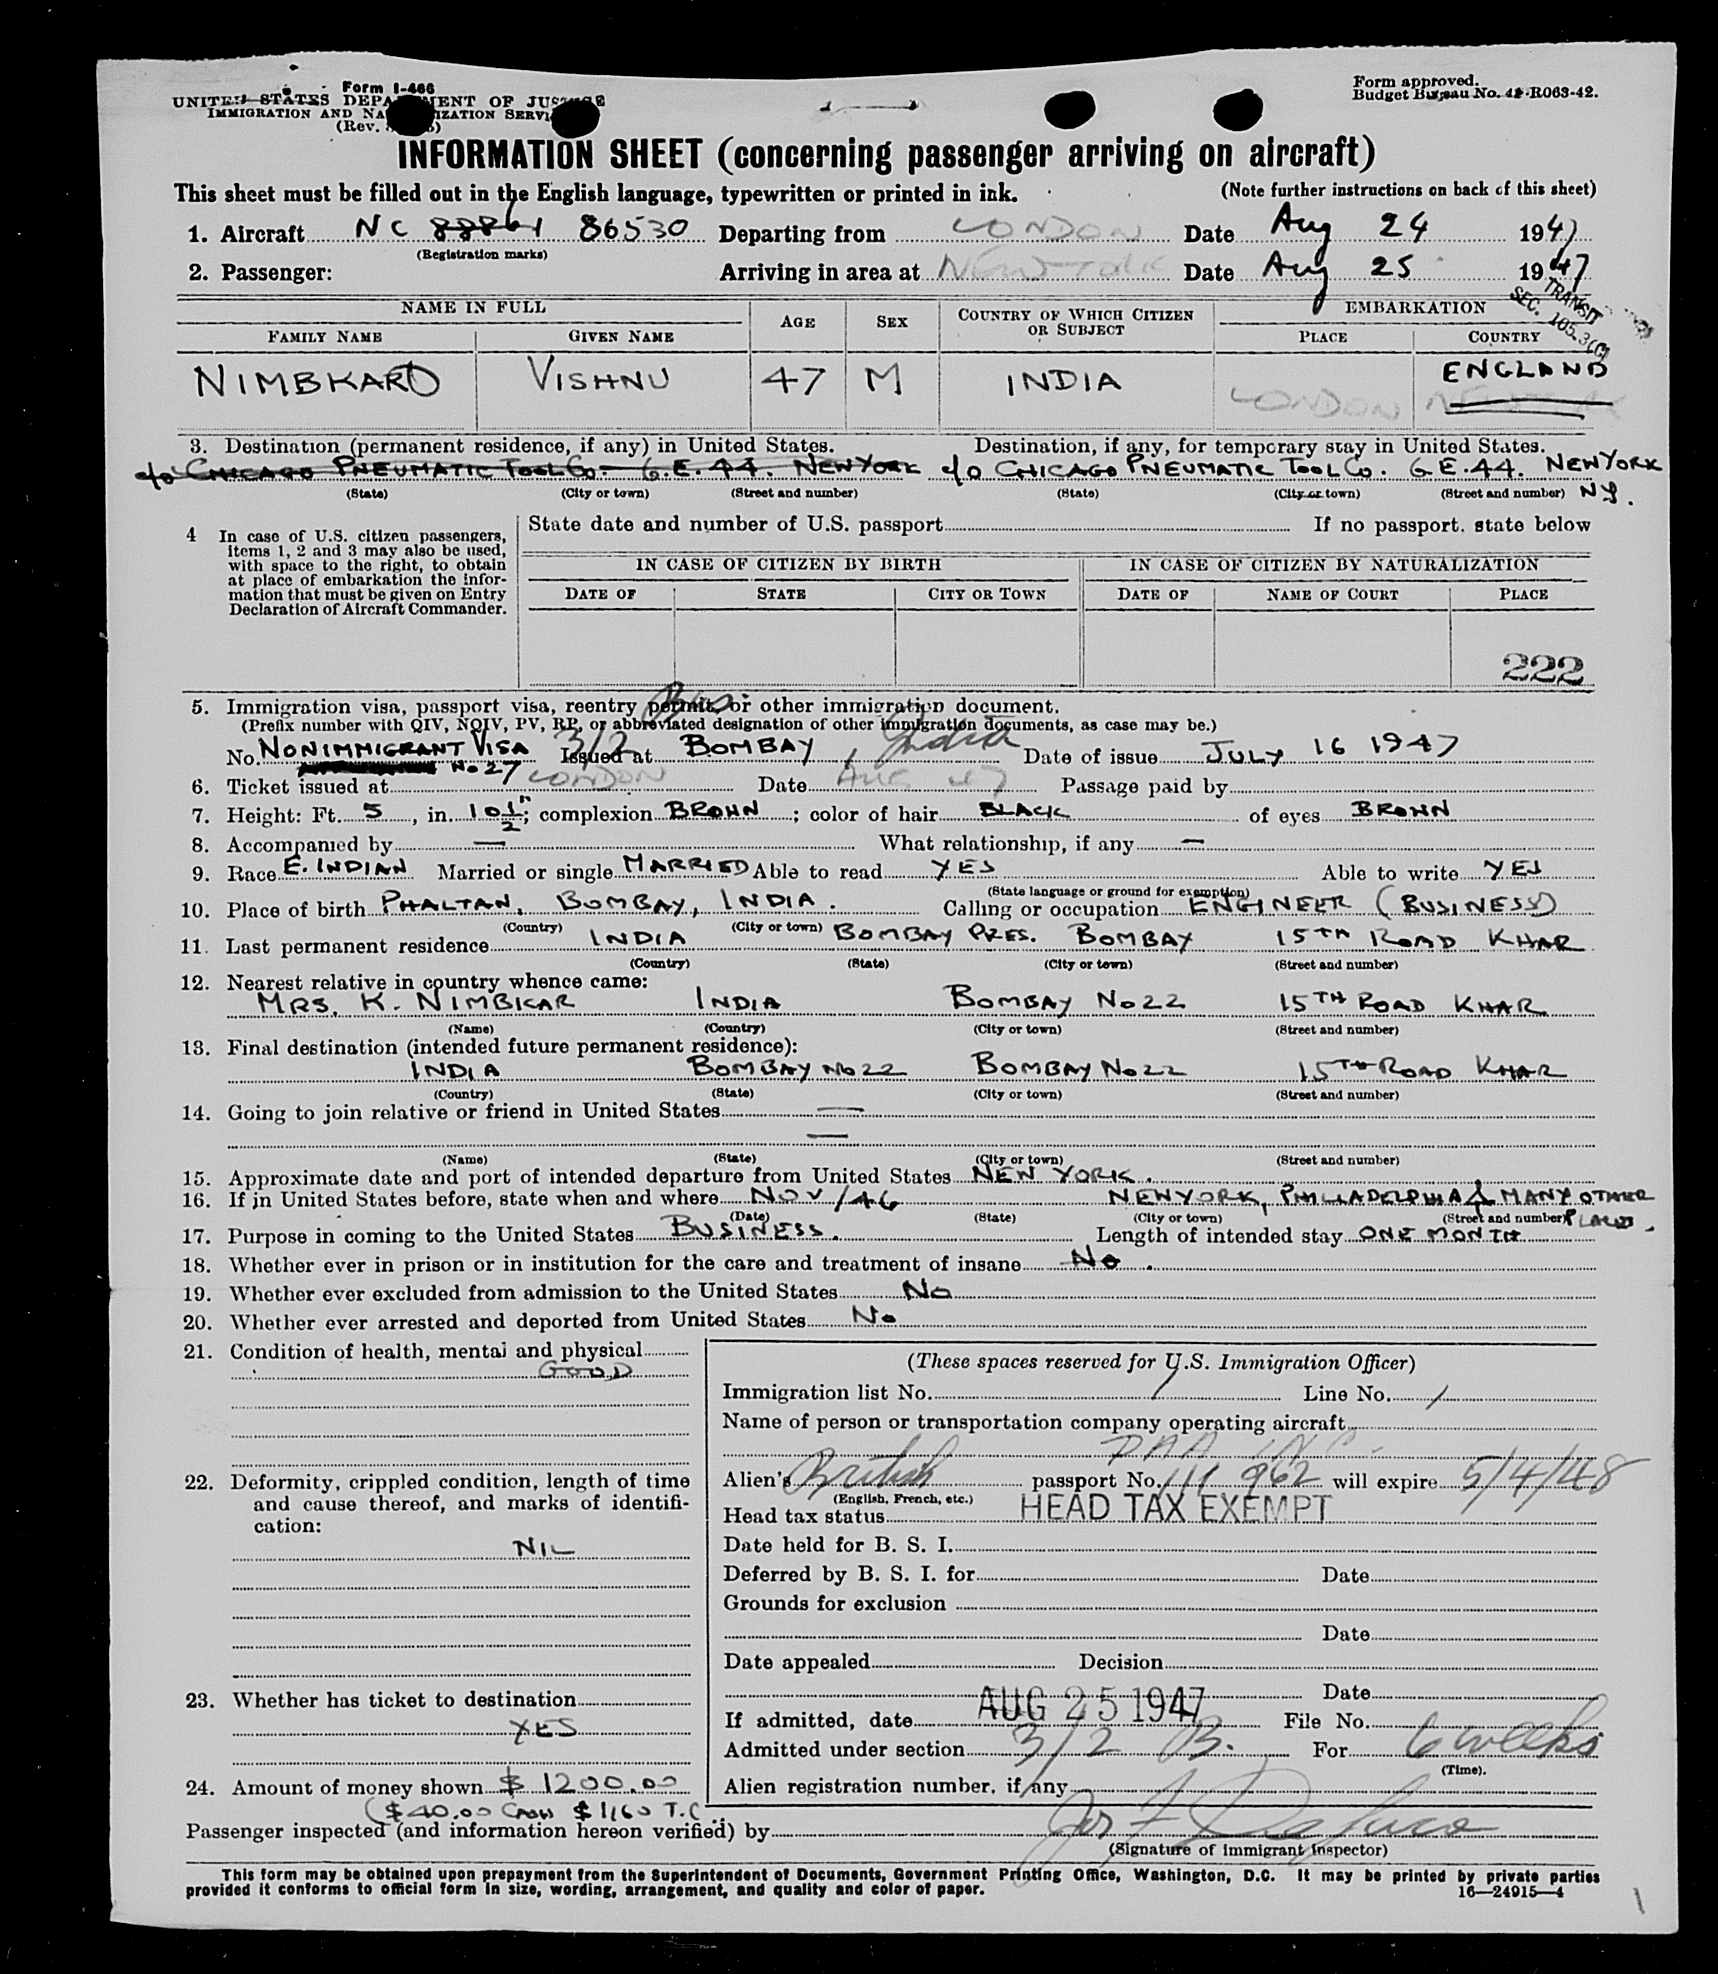 Form I-466
UNITED STATES DEPARTMENT OF JUSTICE
IMMIGRATION AND NATURALIZATION SERVICE
(Rev.
Form approved.
Budget Bureau No. 43-R063-42.
INFORMATION SHEET (concerning passenger arriving on aircraft)
This sheet must be filled out in the English language, typewritten or printed in ink. (Note further instructions on back of this sheet)
1. Aircraft NC 88861 86530 Departing from LONDON Date Aug 24 1947
(Registration marks)
2. Passenger: Arriving in area at NEW YORK Date Aug 25 1947
TRANSIT
SEC. 105.3(C)
NAME IN FULL AGE SEX COUNTRY OF WHICH CITIZEN OR SUBJECT EMBARKATION
FAMILY NAME GIVEN NAME PLACE COUNTRY
NIMBKAR VISHNU 47 M INDIA LONDON ENGLAND
3. Destination (permanent residence, if any) in United States. Destination, if any, for temporary stay in United States.
c/o CHICAGO PNEUMATIC TOOL CO. G.E. 44. NEW YORK c/o CHICAGO PNEUMATIC TOOL CO. G.E. 44. NEW YORK
(State) (City or town) (Street and number) (State) (City or town) (Street and number) N.Y.
4 In case of U.S. citizen passengers, items 1, 2 and 3 may also be used, with space to the right, to obtain at place of embarkation the information that must be given on Entry Declaration of Aircraft Commander.
State date and number of U.S. passport If no passport, state below
IN CASE OF CITIZEN BY BIRTH IN CASE OF CITIZEN BY NATURALIZATION
DATE OF STATE CITY OR TOWN DATE OF NAME OF COURT PLACE
222
5. Immigration visa, passport visa, reentry permit, or other immigration document.
(Prefix number with QIV, NQIV, PV, RP, or abbreviated designation of other immigration documents, as case may be.)
No. NONIMMIGRANT VISA 3/2 Issued at BOMBAY, India Date of issue JULY 16 1947
No 27
6. Ticket issued at LONDON Date AUG 47 Passage paid by
7. Height: Ft. 5, in. 10 1/2"; complexion BROWN; color of hair BLACK of eyes BROWN
8. Accompanied by — What relationship, if any —
9. Race E. INDIAN Married or single MARRIED Able to read YES Able to write YES
(State language or ground for exemption)
10. Place of birth PHALTAN, BOMBAY, INDIA. Calling or occupation ENGINEER (BUSINESS)
(Country) (City or town)
11. Last permanent residence INDIA BOMBAY PRES. BOMBAY 15TH ROAD KHAR
(Country) (State) (City or town) (Street and number)
12. Nearest relative in country whence came:
MRS. K. NIMBKAR INDIA BOMBAY No 22 15TH ROAD KHAR
(Name) (Country) (City or town) (Street and number)
13. Final destination (intended future permanent residence):
INDIA BOMBAY No 22 BOMBAY No 22 15TH ROAD KHAR
(Country) (State) (City or town) (Street and number)
14. Going to join relative or friend in United States —
—
(Name) (State) (City or town) (Street and number)
15. Approximate date and port of intended departure from United States NEW YORK.
16. If in United States before, state when and where NOV/46 NEW YORK, PHILLADELPHIA & MANY OTHER
(Date) (State) (City or town) (Street and number) PLACES.
17. Purpose in coming to the United States BUSINESS. Length of intended stay ONE MONTH
18. Whether ever in prison or in institution for the care and treatment of insane No.
19. Whether ever excluded from admission to the United States No
20. Whether ever arrested and deported from United States No
21. Condition of health, mental and physical
GOOD
22. Deformity, crippled condition, length of time and cause thereof, and marks of identification:
NIL
23. Whether has ticket to destination
YES
24. Amount of money shown $ 1200.00
($40.00 CASH $1160 T.C.
(These spaces reserved for U.S. Immigration Officer)
Immigration list No. 1 Line No. 1
Name of person or transportation company operating aircraft
PAA INC.
Alien's British passport No. 111 962 will expire 5/4/48
(English, French, etc.)
Head tax status HEAD TAX EXEMPT
Date held for B. S. I.
Deferred by B. S. I. for Date
Grounds for exclusion
Date
Date appealed Decision
Date
If admitted, date AUG 25 1947 File No.
Admitted under section 3/2 B. For 6 weeks
(Time).
Alien registration number, if any
Passenger inspected (and information hereon verified) by
(Signature of immigrant inspector)
This form may be obtained upon prepayment from the Superintendent of Documents, Government Printing Office, Washington, D.C. It may be printed by private parties
provided it conforms to official form in size, wording, arrangement, and quality and color of paper. 16—24915—4